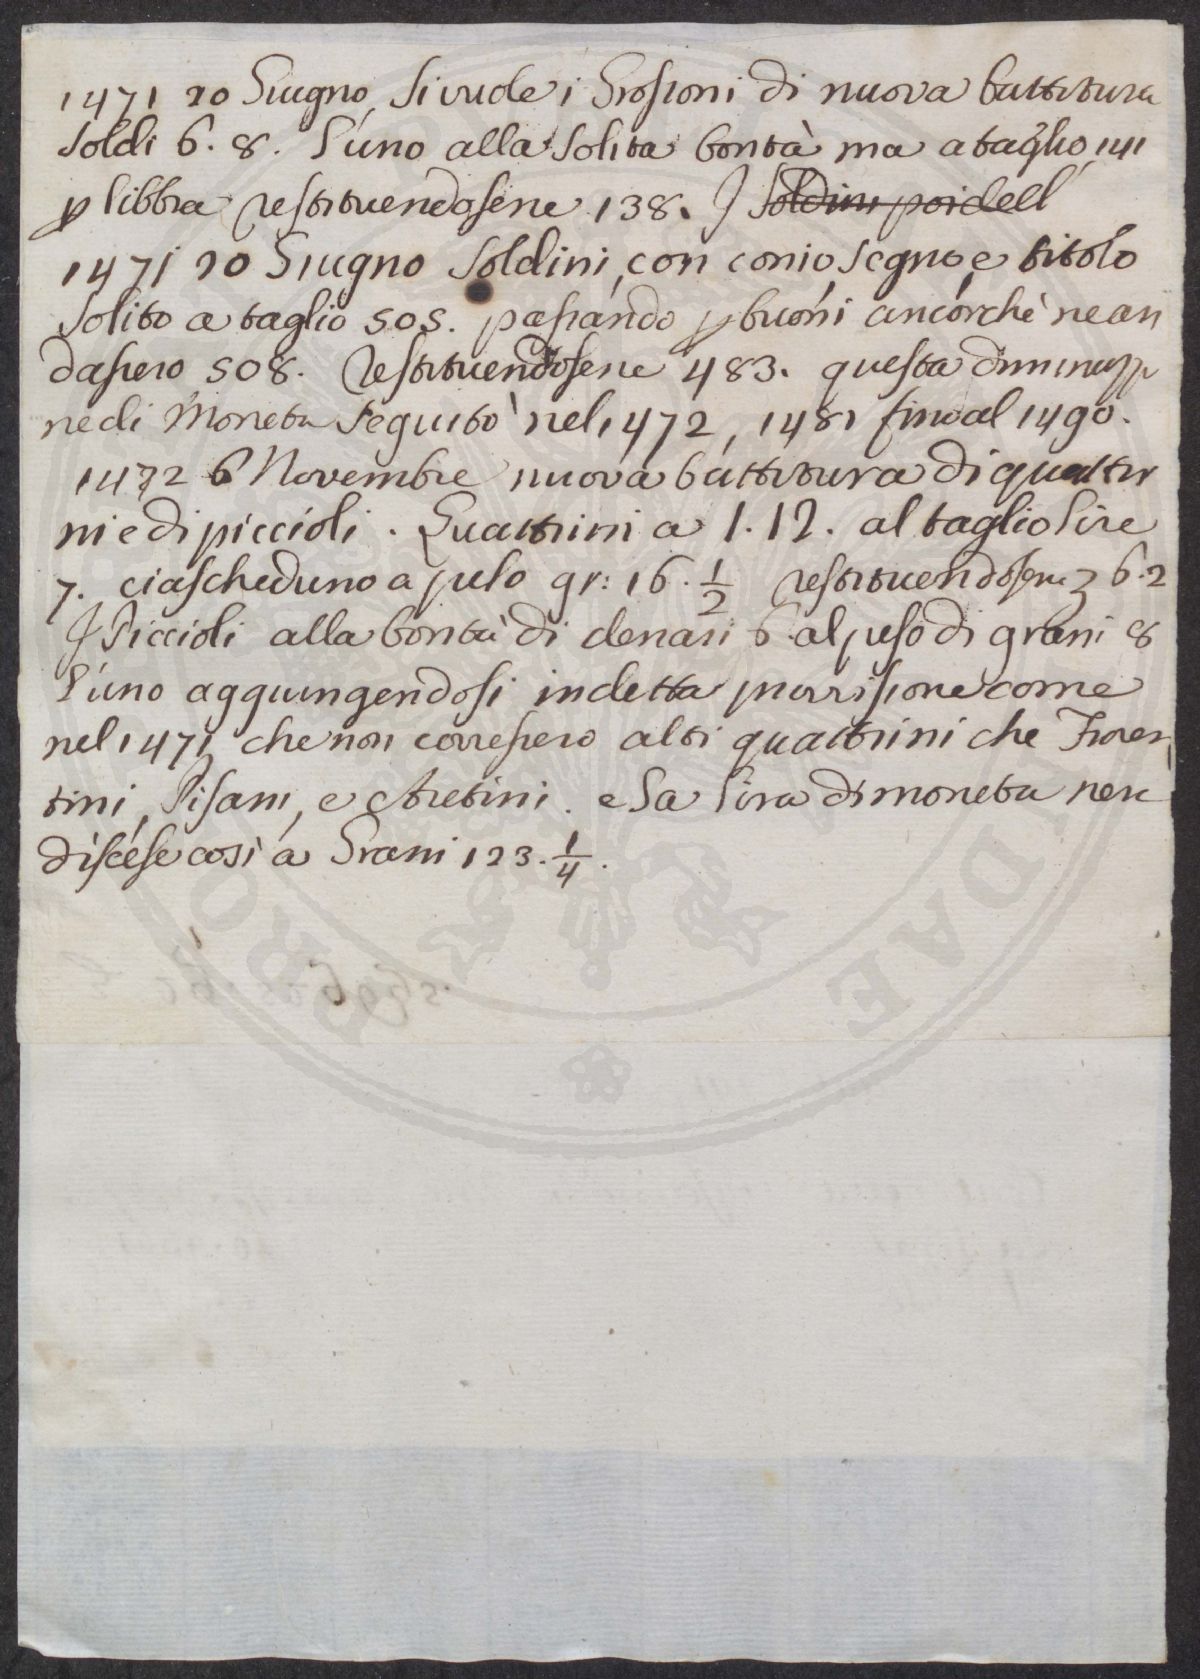 1471 20 Giugno, Si vuole i Grossoni di nuova battitura
Soldi 6. 8. l'uno alla Solita bontà ma a taglio 141
p libbra restituendosene 138. I Soldini poi dell'
1471 20 Giugno Soldini, con conio, segno, e titolo
Solito a taglio 505. passando p buoni ancorchè ne an
dassero 508. restituendosene 483. questa diminuzio
ne di Moneta Seguitò nel 1472, 1481 fino al 1490.
1472 6 Novembre nuova battitura di quattri
ni e di piccioli. Quattrini a 1. 12. al taglio Lire
7. ciascheduno a peso gr: 16. 1/2 restituendosene 6. 2
I Piccioli alla bontà di denari 6 al peso di grani 8
l'uno aggiungendosi in detta provvisione come
nel 1471, che non corressero altri quattrini che Fioren
tini, Pisani, e Aretini. e La Lira di moneta ne
discese così a Grani 123. 1/4.